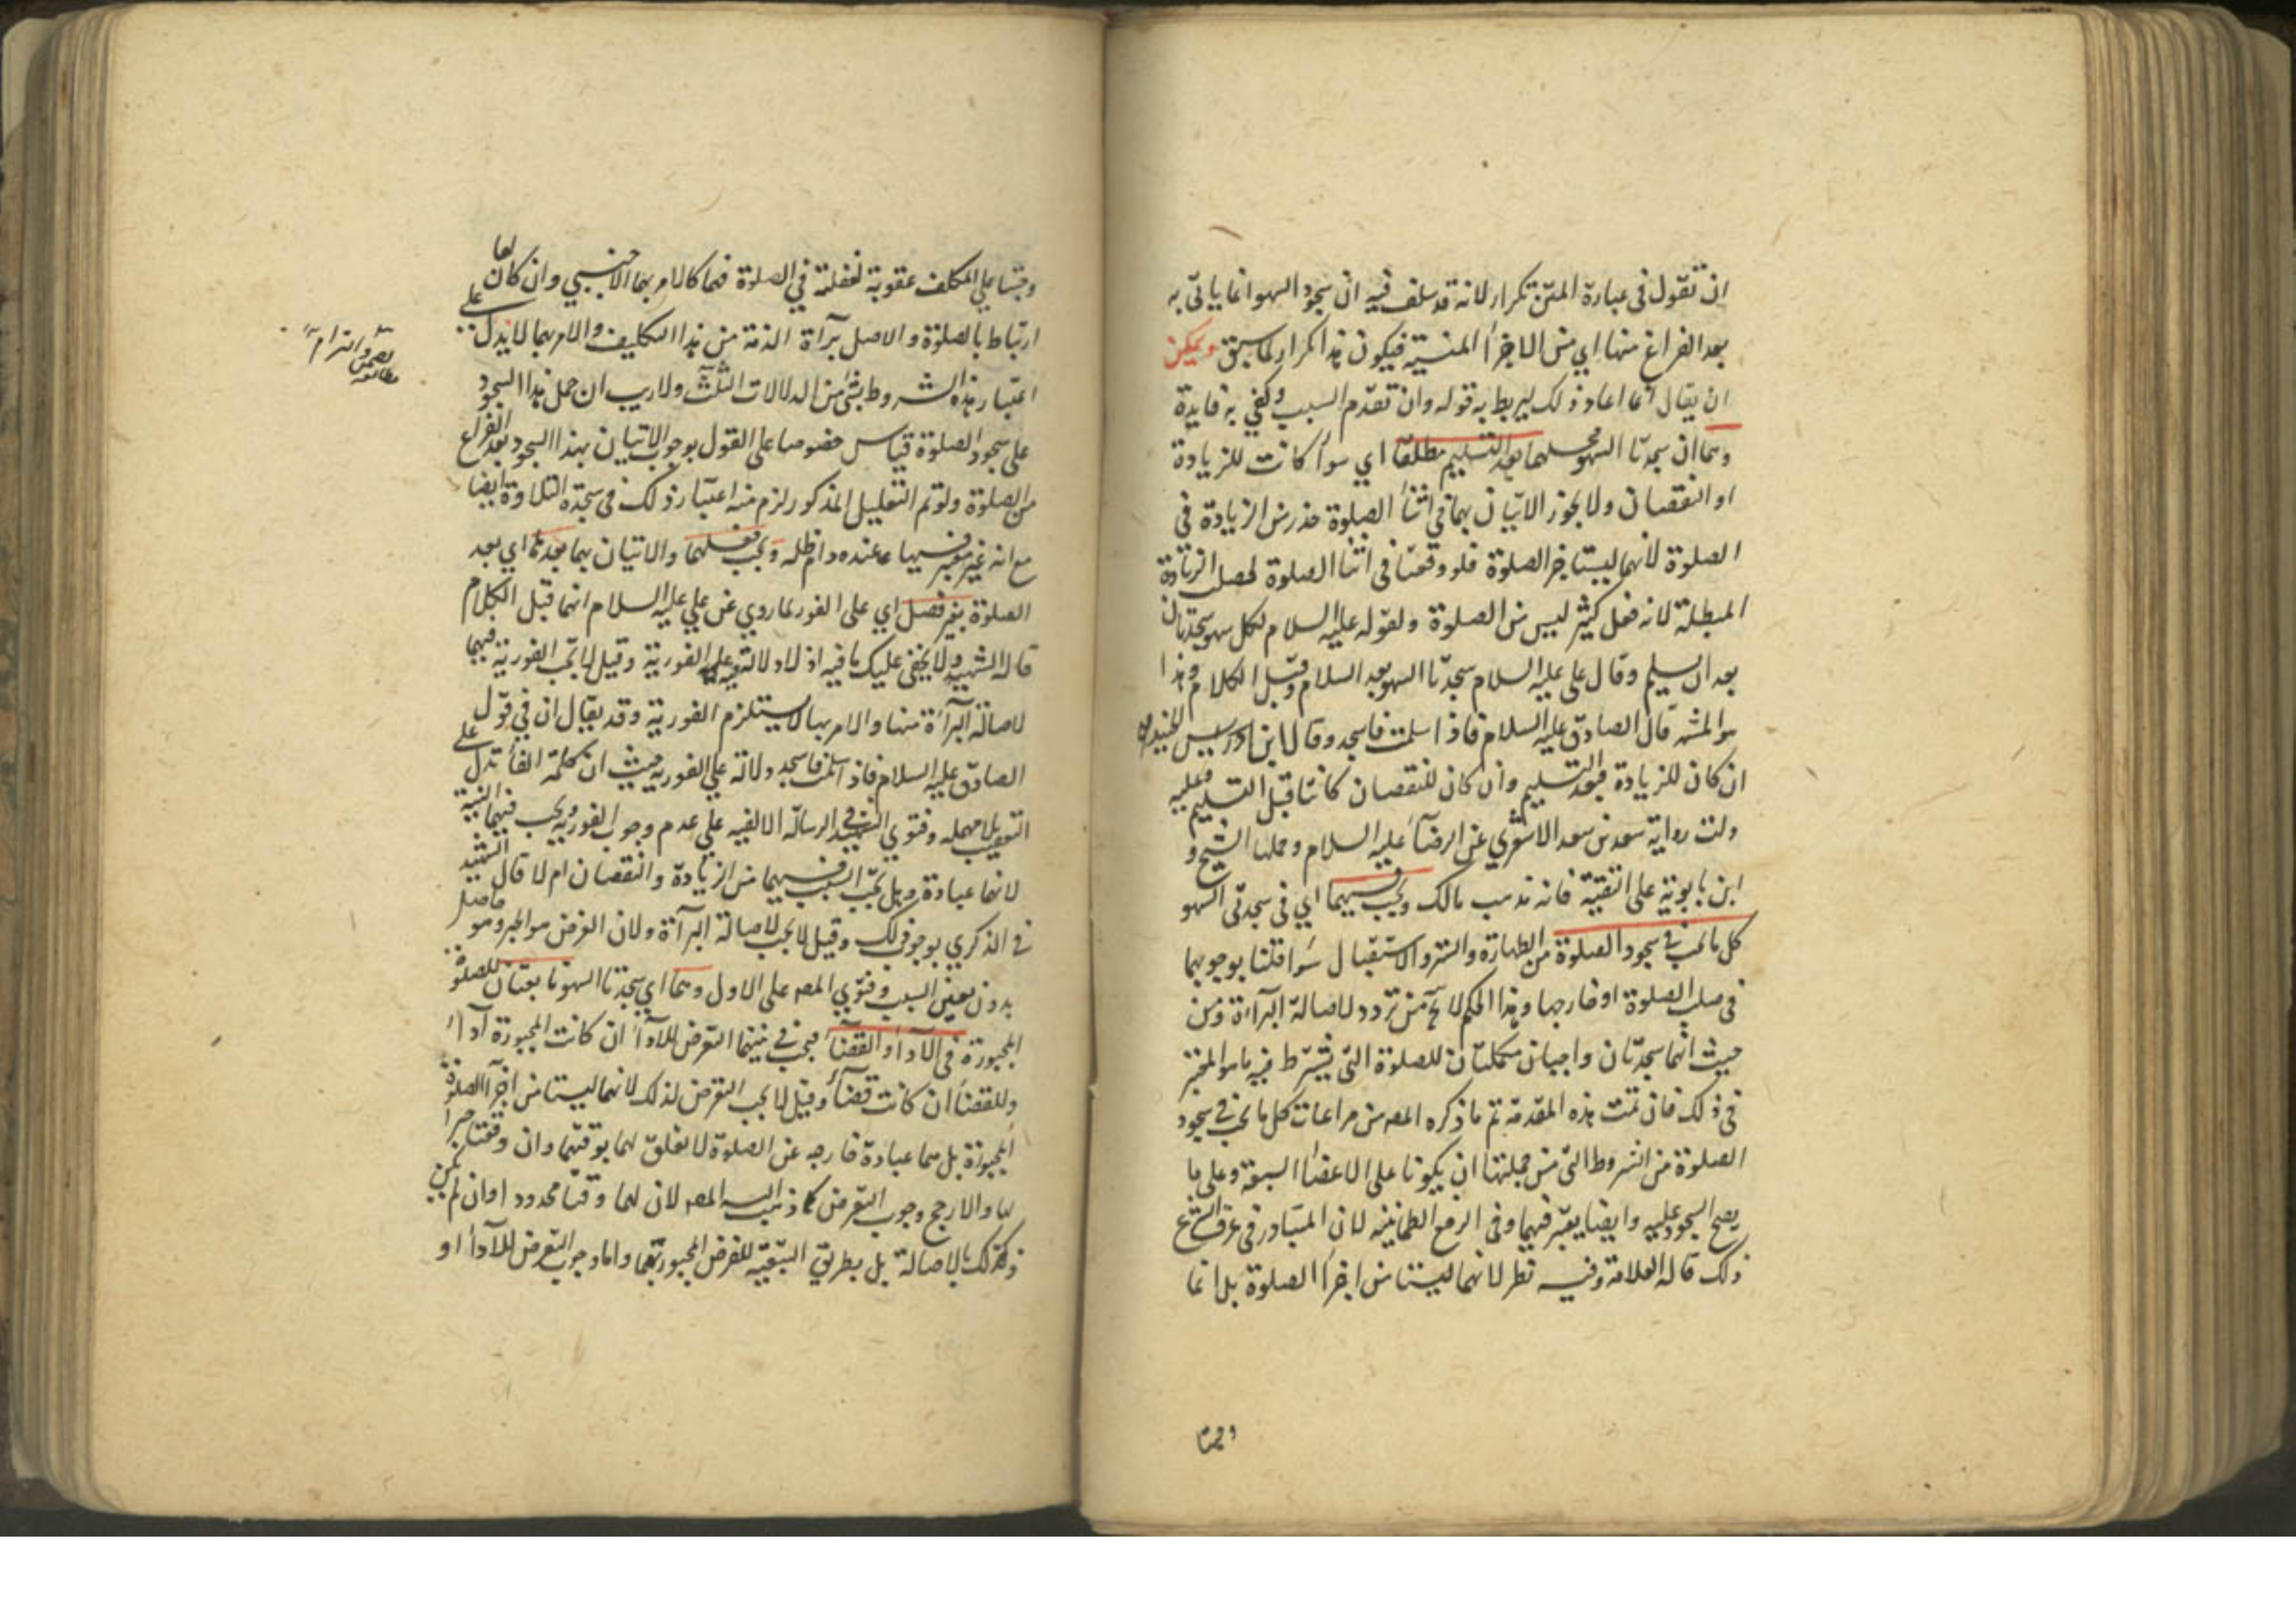 ان تقول فى عبارة المتن تكرار لانه قد سلف فيه ان سجود السهو انما ياتى به
بعد الفراغ منها اي من الاجزاء المنسية فيكون هذا تكرار لما سبق ويمكن
ان يقال انما اعاد ذلك ليربط به قوله وان تقدم السبب وكفى به فايدة
وهما ان سجدتا السهو محلهما بعد التسليم مطلقا اي سواء كانت للزيادة
او النقصان ولا يجوز الاتيان بهما في اثناء الصلوة حذرا من الزيادة في
الصلوة لانهما ليستا جزء الصلوة فلو وقعتا فى اثناء الصلوة لحصل الزيادة
المبطلة لانه فعل كثير ليس من الصلوة ولقوله عليه السلام لكل سهو سجدتان
بعد ان يسلم وقال علي عليه السلام سجدتا السهو بعد السلام وقبل الكلام وهذا
هو المشهور قال الصادق عليه السلام فاذا سلمت فاسجد وقال ابن ادريس الجنيد
ان كان للزيادة فبعد التسليم وان كان للنقصان كانتا قبل التسليم وعليه
دلت رواية سعد بن سعد الاشعري عن الرضا عليه السلام وحملها الشيخ و
ابن بابويه على التقية فانه مذهب مالك ويجب فيهما اي فى سجدتى السهو
كل ما يجب في سجود الصلوة من الطهارة والستر والاستقبال سواء قلنا بوجوبهما
فى صلب الصلوة او خارجها وهذا الحكم لا يخ من تردد لاصالة البراءة ومن
حيث انهما سجدتان واجبتان مكملتان للصلوة التى يشترط فيه ما هو المعتبر
فى ذلك فان تمت هذه المقدمة تم ما ذكره المصـ من مراعات كل ما يجب في سجود
الصلوة من الشروط التى من جملتها ان يكونا على الاعضاء السبعة وعلى ما
يصح السجود عليه وايضا يعتبر فيهما وفى الرفع الطمانينه لان المتبادر فى عرف الشرع
ذلك قاله العلامة وفيه نظر لانهما ليستا من اجزاء الصلوة بل انما
وجبتا
وجبتا علي المكلف عقوبة لغفلته في الصلوة فهما كالامر بهما الاجنبي وان كان لها
ارتباط بالصلوة والاصل برآءة الذمة من هذا التكليف والامر بهما لا يدل على
اعتبار هذه الشروط بشئ من الدلالات الثلث ولا ريب ان حمل هذا السجود
على سجود الصلوة قياس خصوصا على القول بوجوب الاتيان بهذا السجود بعد الفراغ
من الصلوة ولو تم التعليل المذكور لزم منه اعتبار ذلك فى سجدة التلاوة ايضا
مع انه غير معتبر فيها عنده دام ظله ويجب فعلهما والاتيان بهما بعدها اي بعد
الصلوة بغير فصل اي على الفور لما روي عن علي عليه السلام انهما قبل الكلام
قاله الشهيد ولا يخفى عليك ما فيه اذ لا دلالة فيه على الفورية وقيل لا يجب الفورية فيهما
لاصالة البراءة منها والامر بها لا يستلزم الفورية وقد يقال ان في قول
الصادق عليه السلام فاذا سلمت فاسجد دلالة علي الفورية حيث ان كلمة الفاء تدل على
التعقيب بلا مهله وفتوي الشهيد في الرسالة الالفيه علي عدم وجوب الفورية ويجب فيهما النية
لانهما عبادة وهل يجب السبب فيهما من الزيادة والنقصان ام لا قال الشهيد
في الذكري بوجوب ذلك وقيل لا يجب لاصالة البراءة ولان الغرض هو الجبر وهو حاصل
بدون تعين السبب وفتوي المصـ على الاول وهما اي سجدتا السهو تابعتان للصلوة
المجبورة فى الاداء والقضاء فيجب في نيتهما التعرض للاداء ان كانت المجبورة اداء
وللقضاء ان كانت قضاء وقيل لا يجب التعرض لذلك لانهما ليستا من اجزاء الصلوة
المجبورة بل هما عبادة خارجه عن الصلوة لا تعلق لهما بوقتها وان وقعتا جبرا
لها والارجح وجوب التعرض كما ذهب اليه المصـ لان لهما وقتا محدودا وان لم يكن
ذلك بالاصالة بل بطريق التبعية للفرض المجبور بهما واما وجوب التعرض للاداء او